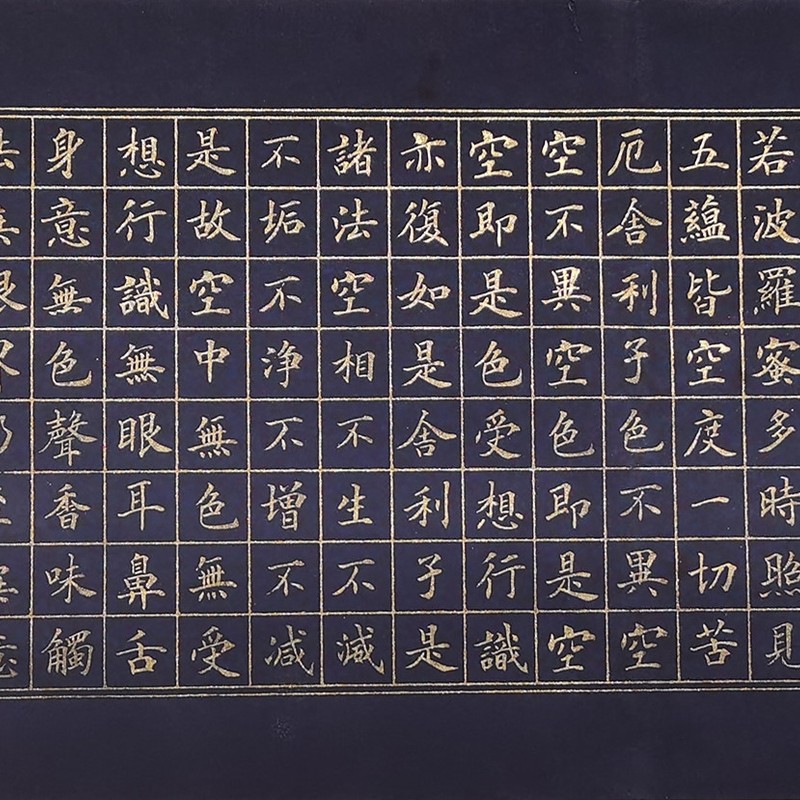 若波羅蜜多時照見
五蘊皆空度一切苦
厄舍利子色不異空
空不異空色即是空
空即是色受想行識
亦復如是舍利子是
諸法空相不生不滅
不垢不浄不增不减
是故空中無色無受
想行識無眼耳鼻舌
身意無色聲香味觸